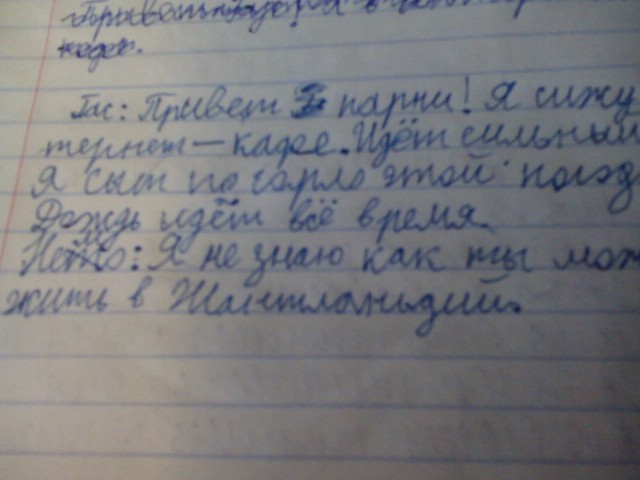 кафе.
Гас: Привет парни! Я сижу
тернет-кафе. Идёт сильный
Я сыт по горло этой погод
Дождь идёт всё время.
Немо: Я не знаю как ты мож
жить в Жантланьдий.